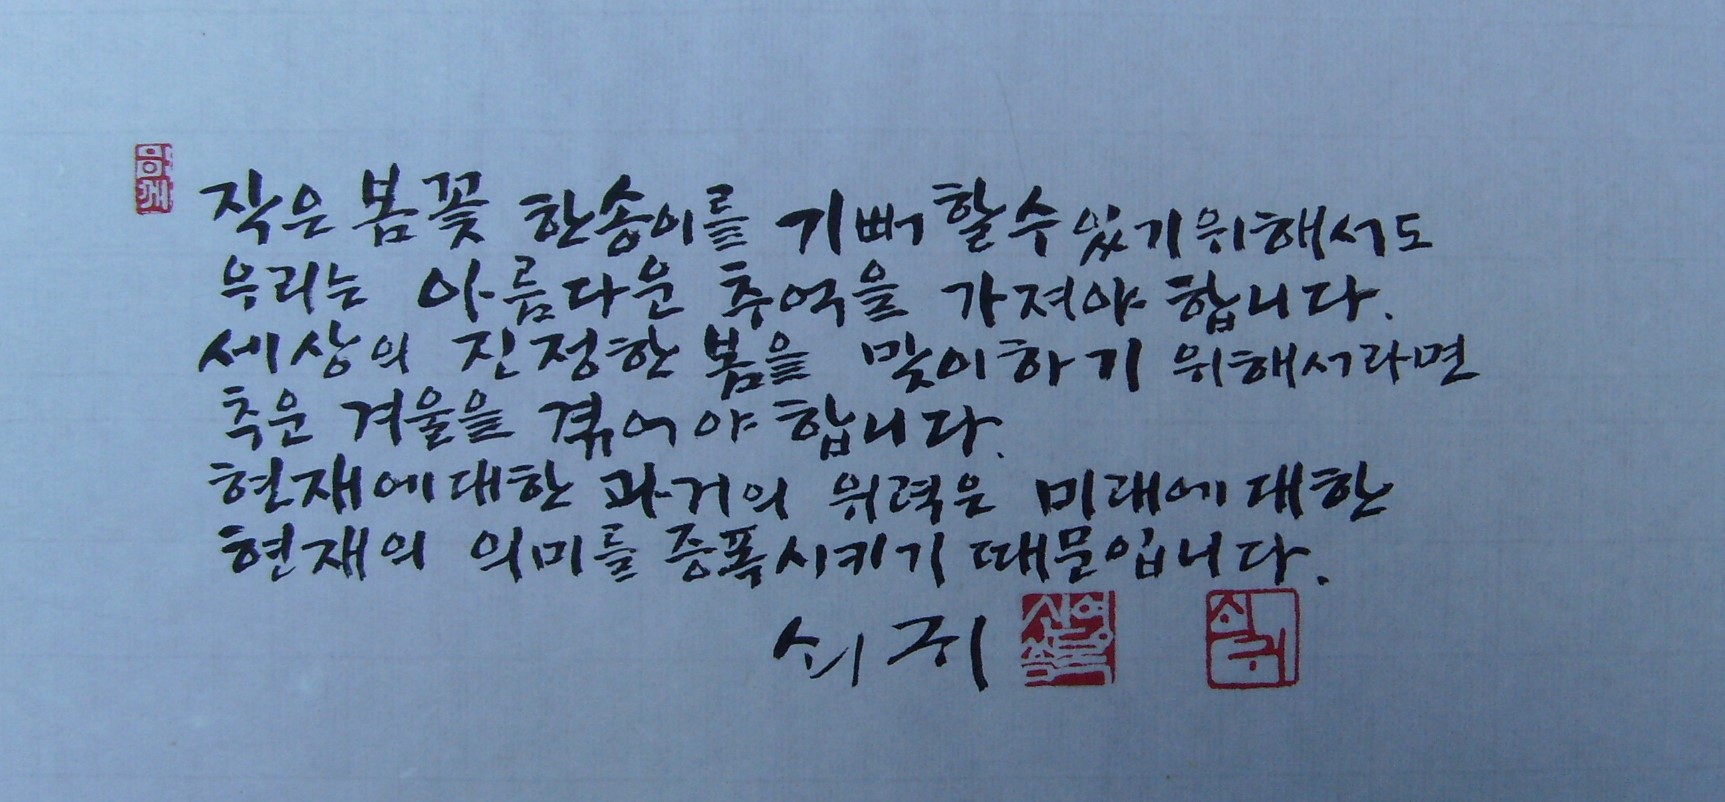 함께
작은 봄꽃 한송이를 기뻐할수있기위해서도
우리는 아름다운 추억을 가져야 합니다.
세상의 진정한 봄을 맞이하기 위해서라면
추운 겨울을 겪어야 합니다.
현재에대한 과거의 위력은 미래에대한
현재의 의미를 증폭시키기 때문입니다.
쇠귀
쇠귀